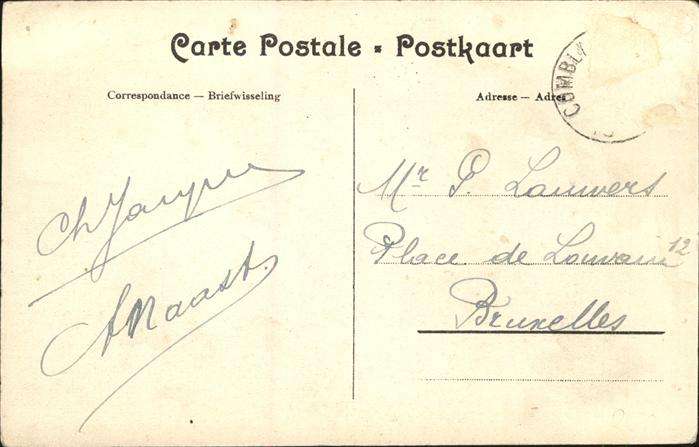 Carte Postale - Postkaart
Correspondance — Briefwisseling
Adresse — Adres
COMBL
A Naast.
Mr P. Lauwers
Place de Louvain 12
Bruxelles